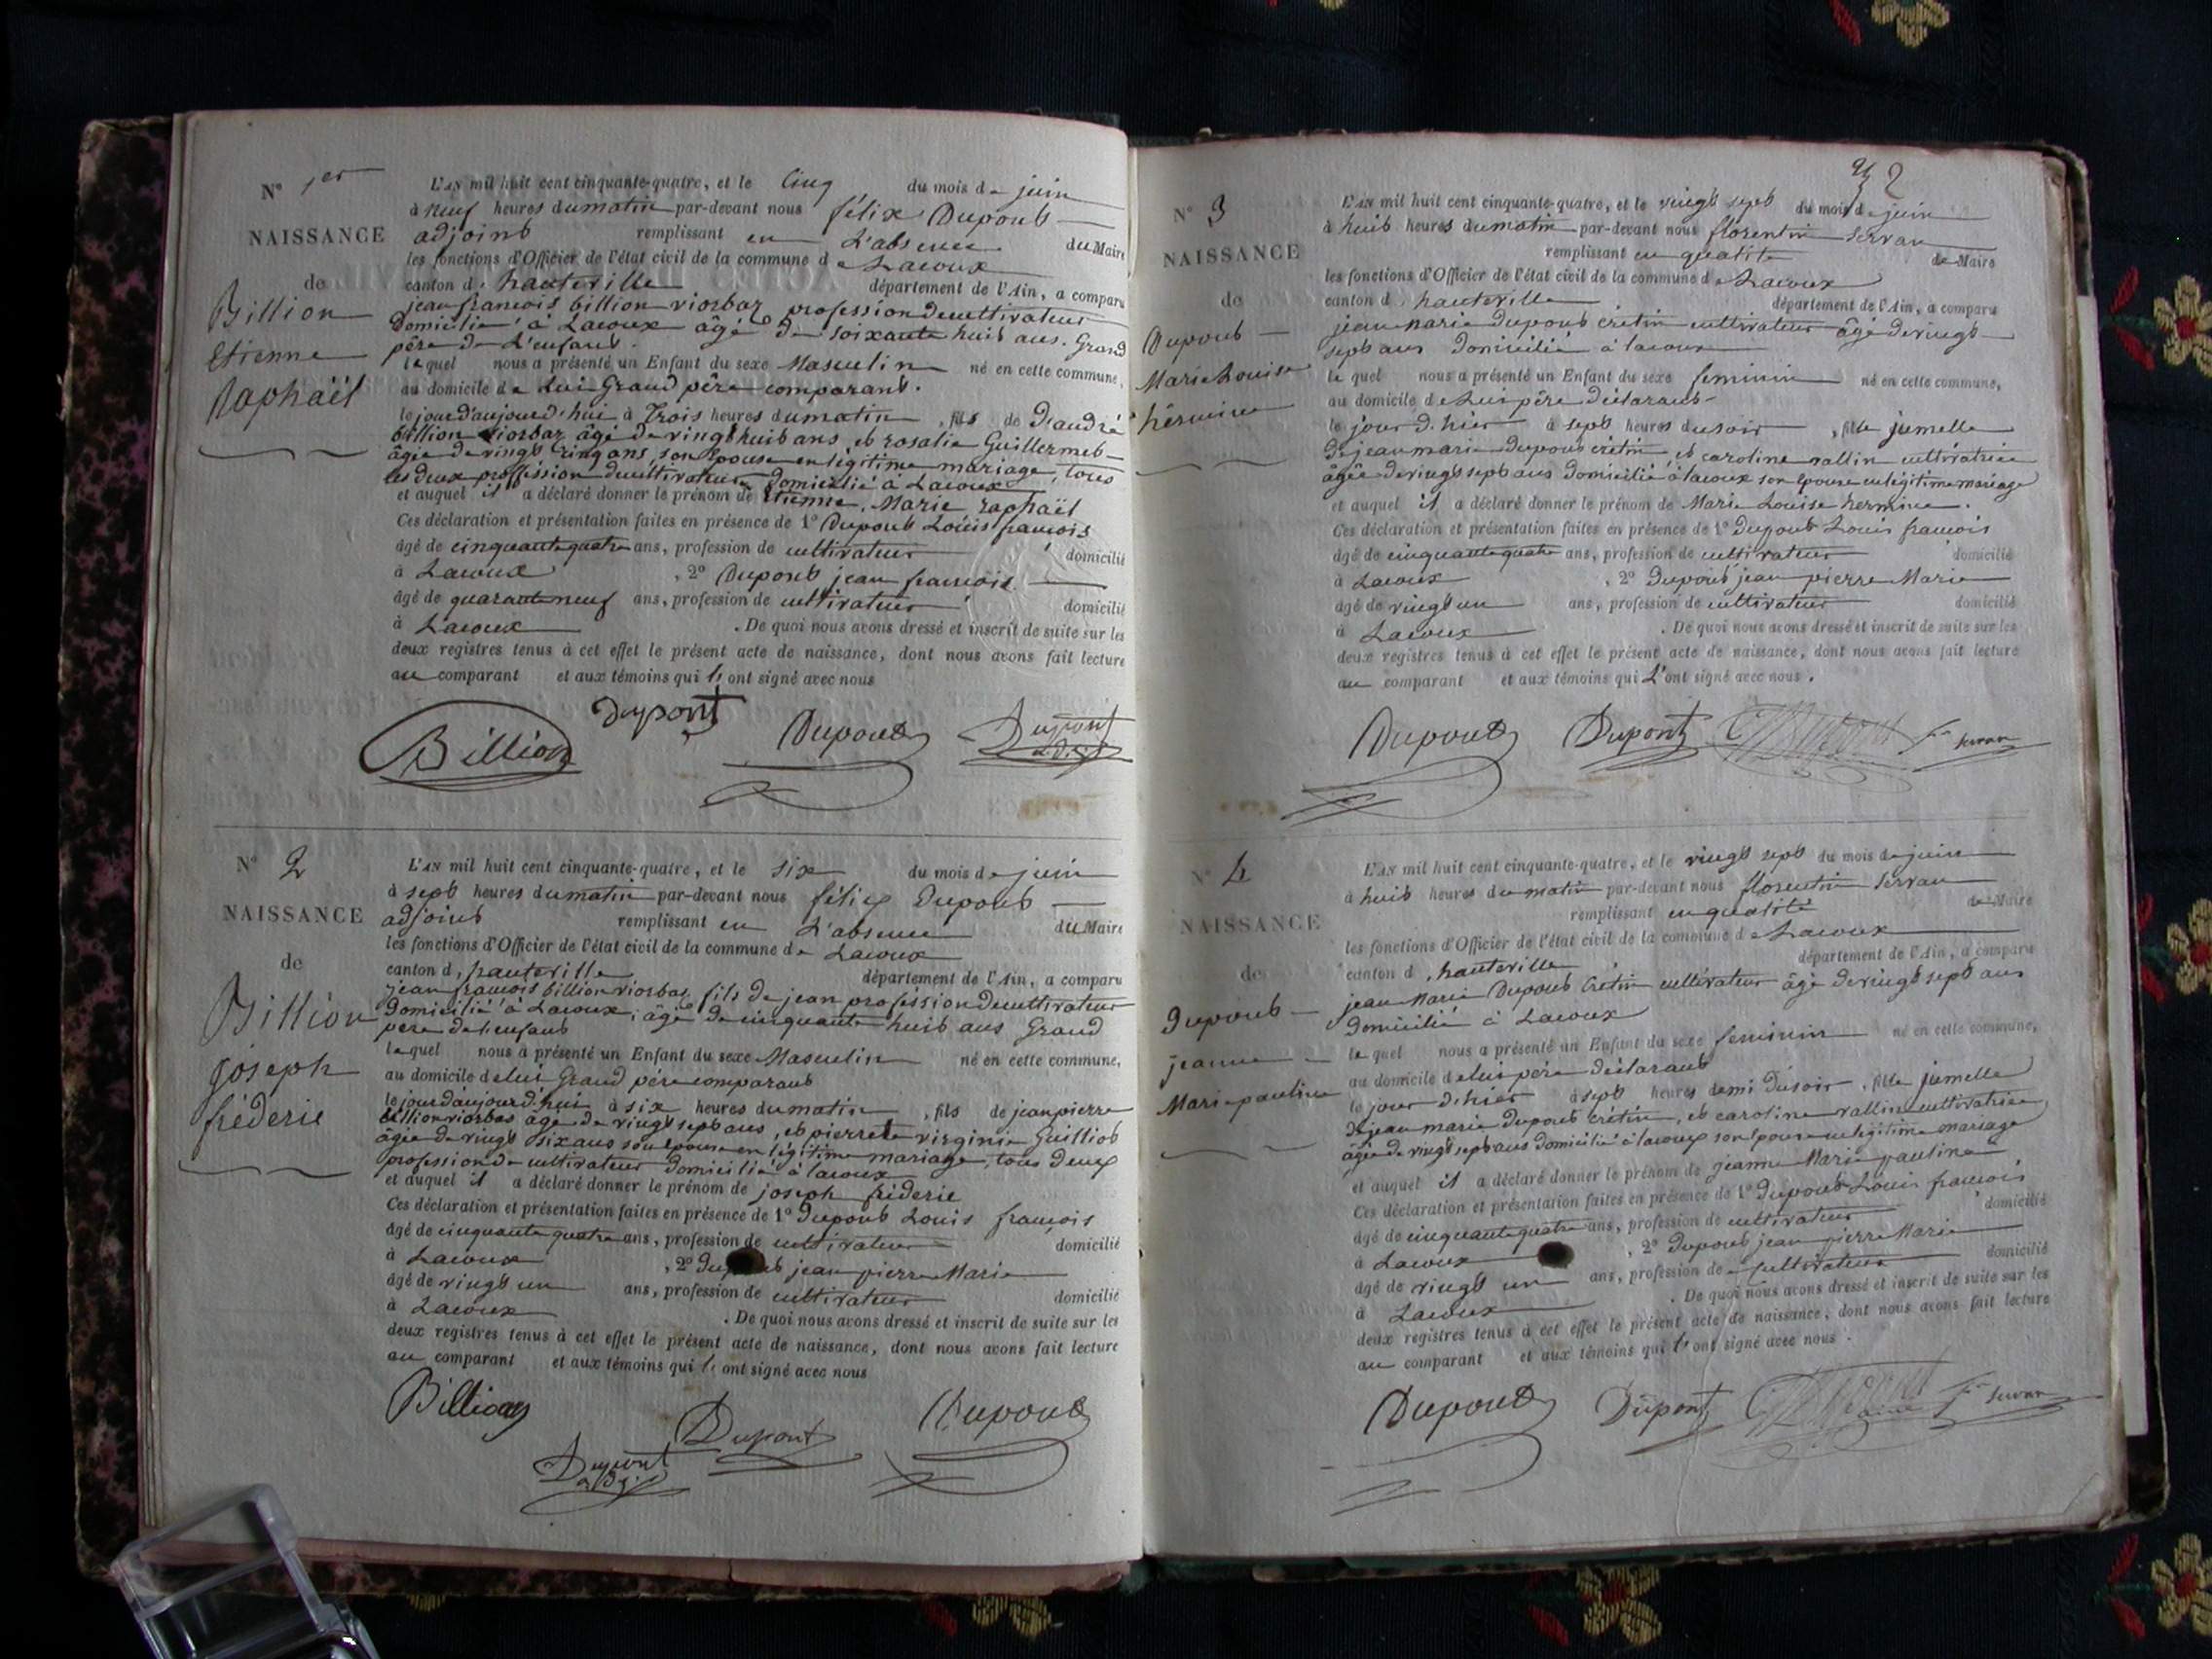 N° 1er
NAISSANCE
de
Billion
Etienne
Raphaël
L'AN mil huit cent cinquante-quatre, et le Cinq du mois de juin
à neuf heures du matin par-devant nous félix Dupont
adjoint remplissant en L'absence du Maire
les fonctions d'Officier de l'état civil de la commune de Lacoux
canton d'hauteville département de l'Ain, a comparu
jean francois billion viorbaz profession de cultivateur
Domicilié à Lacoux âgé de soixante huit ans. Grand
père de L'enfant.
lequel nous a présenté un Enfant du sexe Masculin né en cette commune,
au domicile de Lui Grand père comparant.
le jour d'aujourd'hui à Trois heures du matin, fils de D'andré
billion viorbaz âgé de vingt huit ans, et rosalie Guillermet
âgée de vingt cinq ans, son Epouse en légitime mariage, tous
les deux proffession de cultivateur Domicilié à Lacoux
et auquel il a déclaré donner le prénom de Etienne, Marie raphaël
Ces déclaration et présentation faites en présence de 1° Dupont Louis françois
âgé de cinquante quatre ans, profession de cultivateur domicilié
à Lacoux, 2° Dupont jean francois.
âgé de quarante neuf ans, profession de cultivateur domicilié
à Lacoux. De quoi nous avons dressé et inscrit de suite sur les
deux registres tenus à cet effet le présent acte de naissance, dont nous avons fait lecture
au comparant et aux témoins qui l'ont signé avec nous
Billion Dupont Dupont Dupont adj.
N° 2
NAISSANCE
de
Billion
joseph
fréderic
L'AN mil huit cent cinquante-quatre, et le six du mois de juin
à sept heures du matin par-devant nous félix Dupont
adjoint remplissant en L'absence du Maire
les fonctions d'Officier de l'état civil de la commune de Lacoux
canton d'hauteville département de l'Ain, a comparu
jean francois billion viorbaz fils de jean profession de cultivateur
Domicilié à Lacoux, âgé de cinquante huit ans Grand
père de l'enfant
lequel nous a présenté un Enfant du sexe Masculin né en cette commune,
au domicile de lui Grand père comparant
le jour d'aujourd'hui à six heures du matin, fils de jean pierre
billion viorbaz âgé de vingt sept ans, et pierrete virginie Guilliot
âgée de vingt six ans son Epouse en légitime mariage, tous deux
profession de cultivateur Domicilié à lacoux
et auquel il a déclaré donner le prénom de joseph fréderic
Ces déclaration et présentation faites en présence de 1° Dupont Louis françois
âgé de cinquante quatre ans, profession de cultivateur domicilié
à Lacoux, 2° Dupont jean pierre Marie
âgé de vingt un ans, profession de cultivateur domicilié
à Lacoux. De quoi nous avons dressé et inscrit de suite sur les
deux registres tenus à cet effet le présent acte de naissance, dont nous avons fait lecture
au comparant et aux témoins qui l'ont signé avec nous
Billion Dupont Dupont
Dupont adj.
N° 3
NAISSANCE
de
Dupont
Marie Louise
hermine
L'AN mil huit cent cinquante-quatre, et le vingt sept du mois de juin
à huit heures du matin par-devant nous florentin Servan
remplissant en qualité de Maire
les fonctions d'Officier de l'état civil de la commune de Lacoux
canton d'hauteville département de l'Ain, a comparu
jean marie Dupont crétin cultivateur âgé de vingt
sept ans Domicilié à lacoux
lequel nous a présenté un Enfant du sexe feminin né en cette commune,
au domicile de Lui père déclarant
le jour d'hier à sept heures du soir, fille jumelle
de jean marie Dupont crétin et caroline rallin cultivatrice
âgée de vingt sept ans Domicilié à lacoux son Epouse en légitime mariage
et auquel il a déclaré donner le prénom de Marie Louise hermine.
Ces déclaration et présentation faites en présence de 1° Dupont Louis francois
âgé de cinquante quatre ans, profession de cultivateur domicilié
à Lacoux, 2° Dupont jean pierre Marie
âgé de vingt un ans, profession de cultivateur domicilié
à Lacoux. De quoi nous avons dressé et inscrit de suite sur les
deux registres tenus à cet effet le présent acte de naissance, dont nous avons fait lecture
au comparant et aux témoins qui L'ont signé avec nous.
Dupont Dupont Fn Servan
N° 4
NAISSANCE
de
Dupont
jeanne
Marie pauline
L'AN mil huit cent cinquante-quatre, et le vingt sept du mois de juin
à huit heures du matin par-devant nous florentin Servan
remplissant en qualité de Maire
les fonctions d'Officier de l'état civil de la commune de Lacoux
canton d'hauteville département de l'Ain, a comparu
jean Marie Dupont Crétin cultivateur âgé de vingt sept ans
Domicilié à Lacoux
lequel nous a présenté un Enfant du sexe feminin né en cette commune,
au domicile de lui père déclarant
le jour d'hier à sept heures demi du soir, fille jumelle
de jean marie Dupont crétin, et caroline rallin cultivatrice,
âgée de vingt sept ans Domicilié à lacoux son Epouse en légitime mariage
et auquel il a déclaré donner le prénom de jeanne Marie pauline
Ces déclaration et présentation faites en présence de 1° Dupont Louis francois
âgé de cinquante quatre ans, profession de cultivateur domicilié
à Lacoux, 2° Dupont jean pierre Marie
âgé de vingt un ans, profession de cultivateur domicilié
à Lacoux. De quoi nous avons dressé et inscrit de suite sur les
deux registres tenus à cet effet le présent acte de naissance, dont nous avons fait lecture
au comparant et aux témoins qui l'ont signé avec nous.
Dupont Dupont Fn Servan